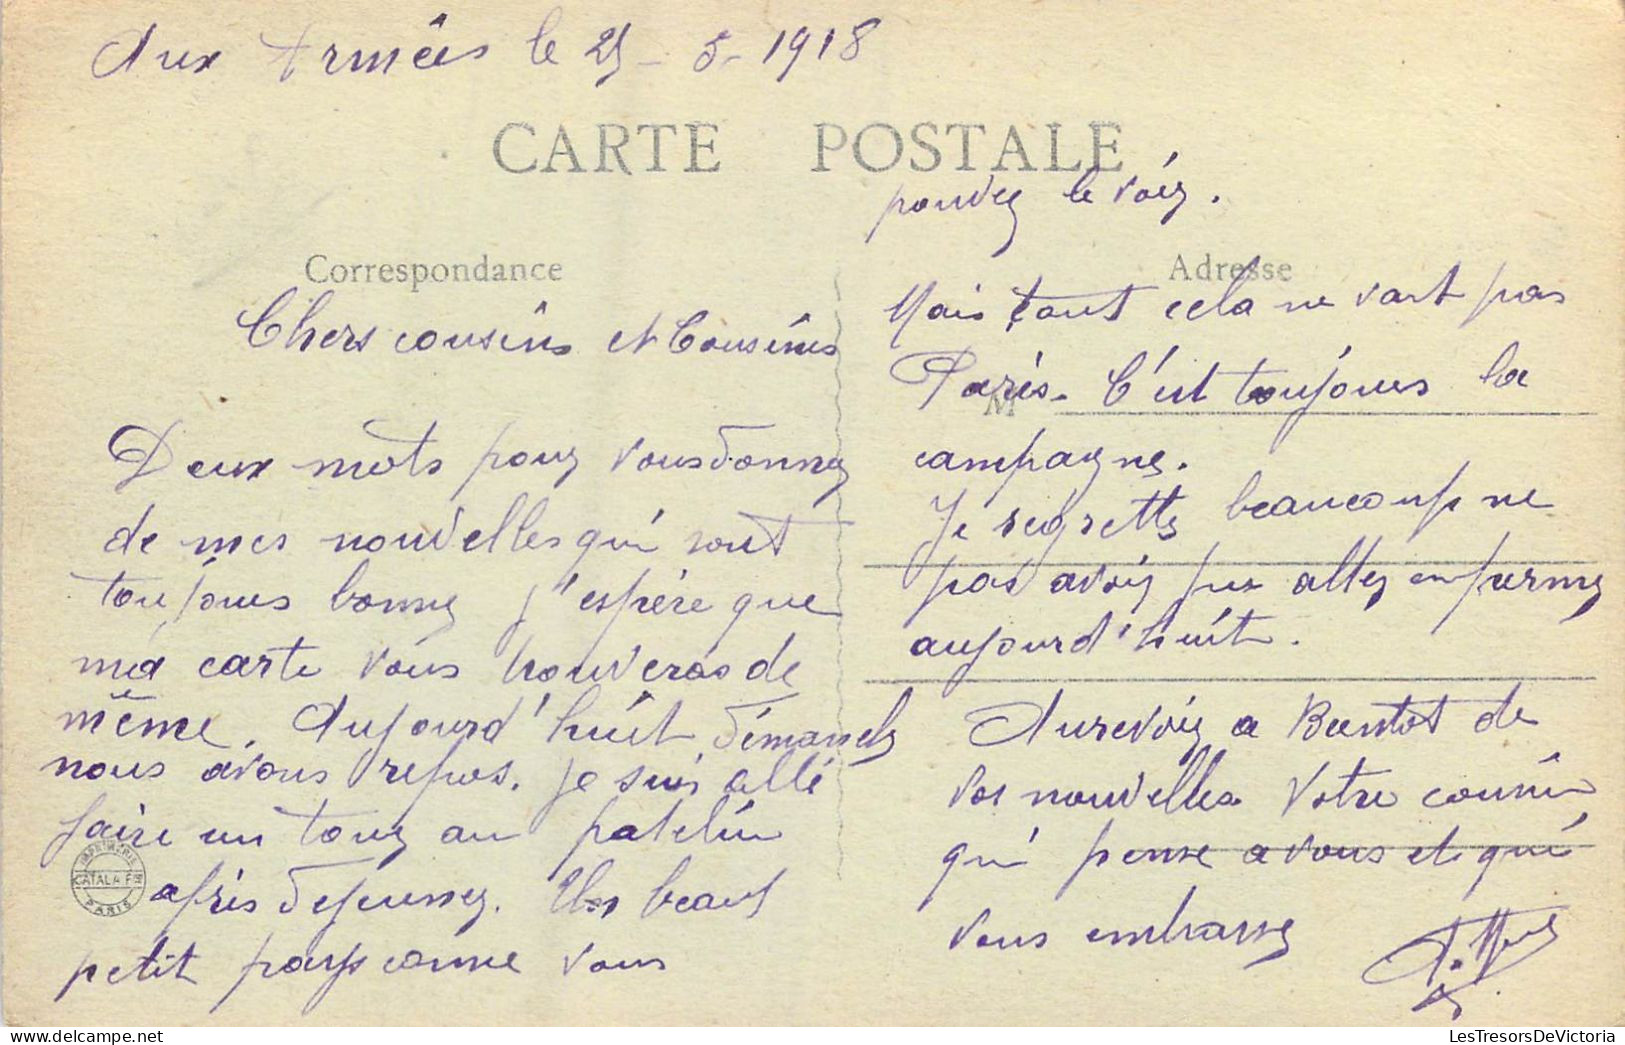 Aux Armées le 25 - 5 - 1918
CARTE POSTALE
Correspondance
Chers cousins et Cousines
Deux mots pour vous donner
de mes nouvelles qui sont
toujours bonne j'espère que
ma carte vous trouveras de
même. Aujourd'huit dimanche
nous avons repos. Je suis allé
faire un tour au patelin
après dejeuner. Un beaut
petit pays comme vous
IMPRIMERIE
CATALA Frès
PARIS
pouvez le voir.
Adresse
Mais tout cela ne vaut pas
Paris. C'est toujours la
M
campagne.
Je regrette beaucoup ne
pas avoir pu aller en perme
aujourd'huit.
Aurevoir a Bientot de
vos nouvelles Votre cousin
qui pense a vous et qui
vous embrasse
LesTresorsDeVictoria.com